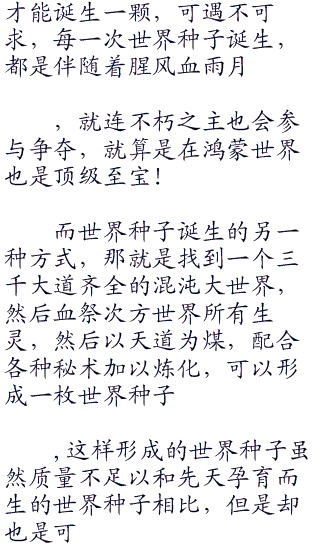 才能诞生一颗，可遇不可
求，每一次世界种子诞生，
都是伴随着腥风血雨月
，就连不朽之主也会参
与争夺，就算是在鸿蒙世界
也是顶级至宝！
而世界种子诞生的另一
种方式，那就是找到一个三
千大道齐全的混沌大世界，
然后血祭次方世界所有生
灵，然后以天道为煤，配合
各种秘术加以炼化，可以形
成一枚世界种子
,这样形成的世界种子虽
然质量不足以和先天孕育而
生的世界种子相比，但是却
也是可